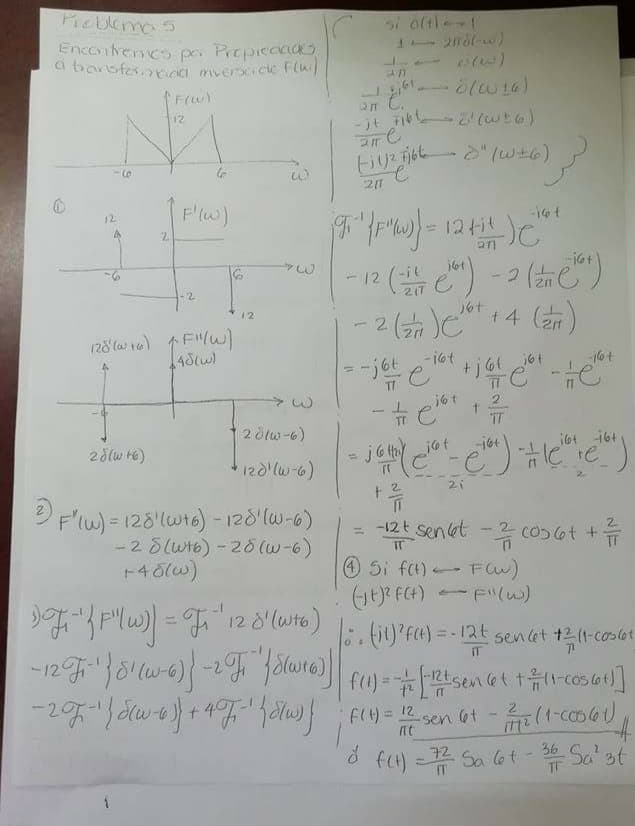 Problema 5
Encontremos por Propiedades
la transformada inversa de F(ω)
F(ω)
12
-6
6
ω
①
12
F'(ω)
2
-6
6
ω
-2
12
12δ'(ω+6)
F''(ω)
4δ(ω)
-6
ω
2δ(ω+6)
2δ(ω-6)
12δ'(ω-6)
2) F''(ω) = 12δ'(ω+6) - 12δ'(ω-6)
- 2δ(ω+6) - 2δ(ω-6)
+4δ(ω)
3) ℱ⁻¹{F''(ω)} = ℱ⁻¹ 12δ'(ω+6)
-12ℱ⁻¹{δ'(ω-6)} -2ℱ⁻¹{δ(ω+6)}
-2ℱ⁻¹{δ(ω-6)} + 4ℱ⁻¹{δ(ω)}
Si δ(t) ↔ 1
1 ↔ 2πδ(-ω)
1/2π ↔ δ(ω)
1/2π e^∓j6t ↔ δ(ω±6)
-jt/2π e^∓j6t ↔ δ'(ω±6)
(-jt)²/2π e^∓j6t ↔ δ''(ω±6)
ℱ⁻¹{F''(ω)} = 12(-jt/2π) e^-j6t
- 12(-jt/2π e^j6t) - 2(1/2π e^-j6t)
- 2(1/2π)e^j6t + 4(1/2π)
= -j6t/π e^-j6t + j6t/π e^j6t - 1/π e^-j6t
- 1/π e^j6t + 2/π
= j6t/π (e^j6t - e^-j6t) - 1/π (e^j6t + e^-j6t)
2i
2
+ 2/π
= -12t/π sen6t - 2/π cos6t + 2/π
④ Si f(t) ↔ F(ω)
(-jt)² f(t) ↔ F''(ω)
∴ (-jt)² f(t) = -12t/π sen6t + 2/π (1-cos6t
f(t) = -1/t² [-12t/π sen6t + 2/π (1-cos6t)]
f(t) = 12/πt sen6t - 2/πt² (1-cos6t)
ó f(t) = 72/π Sa6t - 36/π Sa² 3t